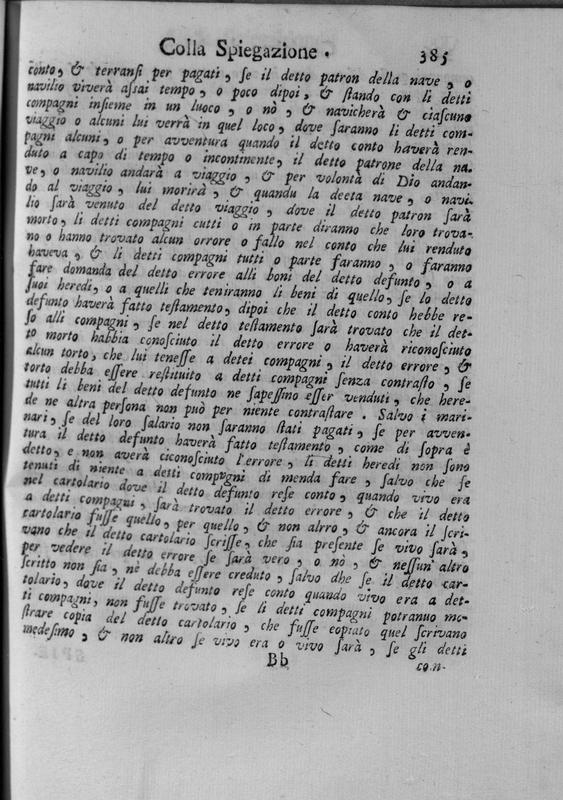 Colla Spiegazione . 385
conto, & terransi per pagati, se il detto patron della nave, o
navilio viverà assai tempo, o poco dipoi, & stando con li detti
compagni insieme in un luoco, o nò, & navicherà & ciascuno
viaggio o alcuni lui verrà in quel loco, dove saranno li detti com-
pagni alcuni, o per avventura quando il detto conto haverà ren-
duto a capo di tempo o incontinente, il detto patrone della na-
ve, o navilio andarà a viaggio, & per volontà di Dio andan-
do al viaggio, lui morirà, & quandu la deeta nave, o navi-
lio sarà venuto del detto viaggio, dove il detto patron sarà
morto, li detti compagni cutti o in parte diranno che loro trova-
no o hanno trovato alcun orrore o fallo nel conto che lui renduto
haveva, & li detti compagni tutti o parte faranno, o faranno
fare domanda del detto errore alli boni del detto defunto, o a
suoi heredi, o a quelli che teniranno li beni di quello, se lo detto
defunto haverà fatto testamento, dipoi che il detto conto hebbe re-
so alli compagni, se nel detto testamento sarà trovato che il det-
to morto habbia conosciuto il detto errore o haverà riconosciuto
alcun torto, che lui tenesse a detei compagni, il detto errore, &
torto debba essere restituito a detti compagni senza contrasto, se
tutti li beni del detto defunto ne sapessino esser venduti, che here-
de ne altra persona non può per niente contrastare . Salvo i mari-
nari, se del loro salario non saranno stati pagati, se per avven-
tura il detto defunto haverà fatto testamento, come di sopra è
detto, e non averà ciconosciuto l'errore, li detti heredi non sono
tenuti di niente a detti compagni di menda fare, salvo che se
nel cartolario dove il detto defunto rese conto, quando vivo era
a detti compagni, sarà trovato il detto errore, & che il detto
cartolario fusse quello, per quello, & non alrro, & ancora il scri-
vano che il detto cartolario scrisse, che sia presente se vivo sarà,
per vedere il detto errore se sarà vero, o nò, & nessun altro
scritto non sia, nè debba essere creduto, salvo dhe se il detto car-
tolario, dove il detto defunto rese conto quando vivo era a det-
ti compagni, non fusse trovato, se li detti compagni potranuo mo-
strare copia del detto cartolario, che fusse eopiato quel scrivano
medesimo, & non altro se vivo era o vivo sarà, se gli detti
Bb con-